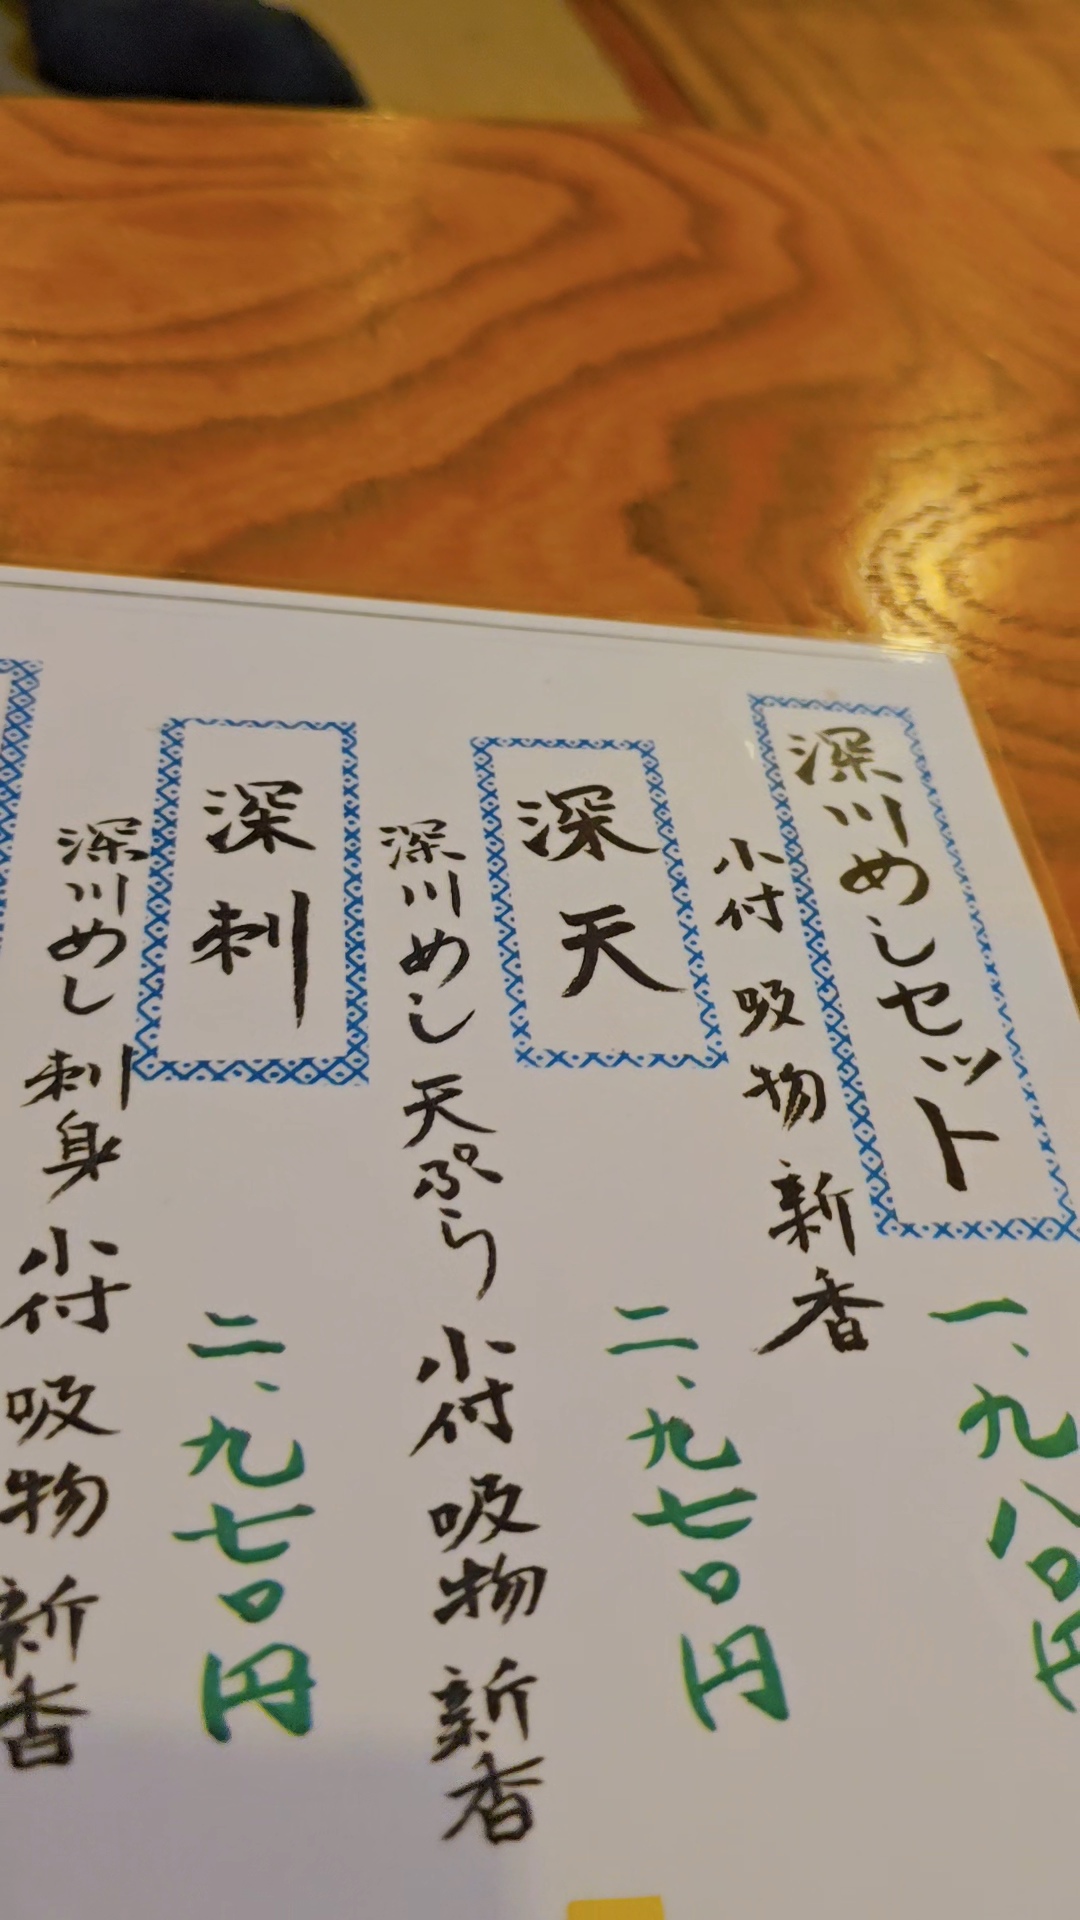 深川めしセット
小付 吸物 新香
一、九八〇円
深天
深川めし 天ぷら 小付 吸物 新香
二、九七〇円
深刺
深川めし 刺身 小付 吸物 新香
二、九七〇円